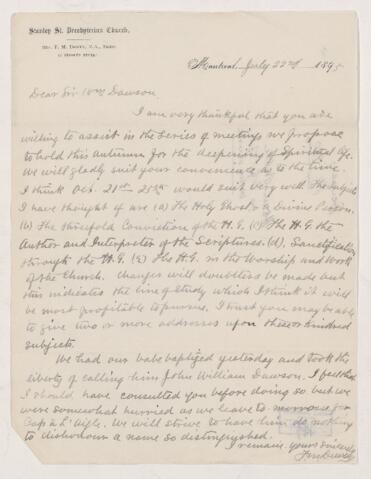 Stanley St. Presbyterian Church,
Rev. F. M. Dewey, M.A., Pastor
Montreal, July 22nd 1895
Dear Sir Wm Dawson
I am very thankful that you are
willing to assist in the series of meetings we propose
to hold this Autumn for the deepening of Spiritual life.
We will gladly suit your convenience as to the time.
I think Oct. 21st-25th would suit very well. The subjects
I have thought of are (a) The Holy Ghost a Divine Person.
(b) The threefold Conviction of the H.G. (c) The H.G. the
Author and Interpreter of the Scriptures. (d), Sanctification
through the H.G. (e) The H.G. in the Worship and Work
of the Church. Changes will doubtless be made but
this indicates the line of study which I think it will
be most profitable to pursue. I trust you may be able
to give two or more addresses upon these or kindred
subjects.
We had our babe baptized yesterday and took the
liberty of calling him John William Dawson. I feel that
I should have consulted you before doing so but we
were somewhat hurried as we leave to morrow for
Cap à L'Aigle. We will strive to have him do nothing
to dishonour a name so distinguished.
I remain, yours sincerely
F M Dewey